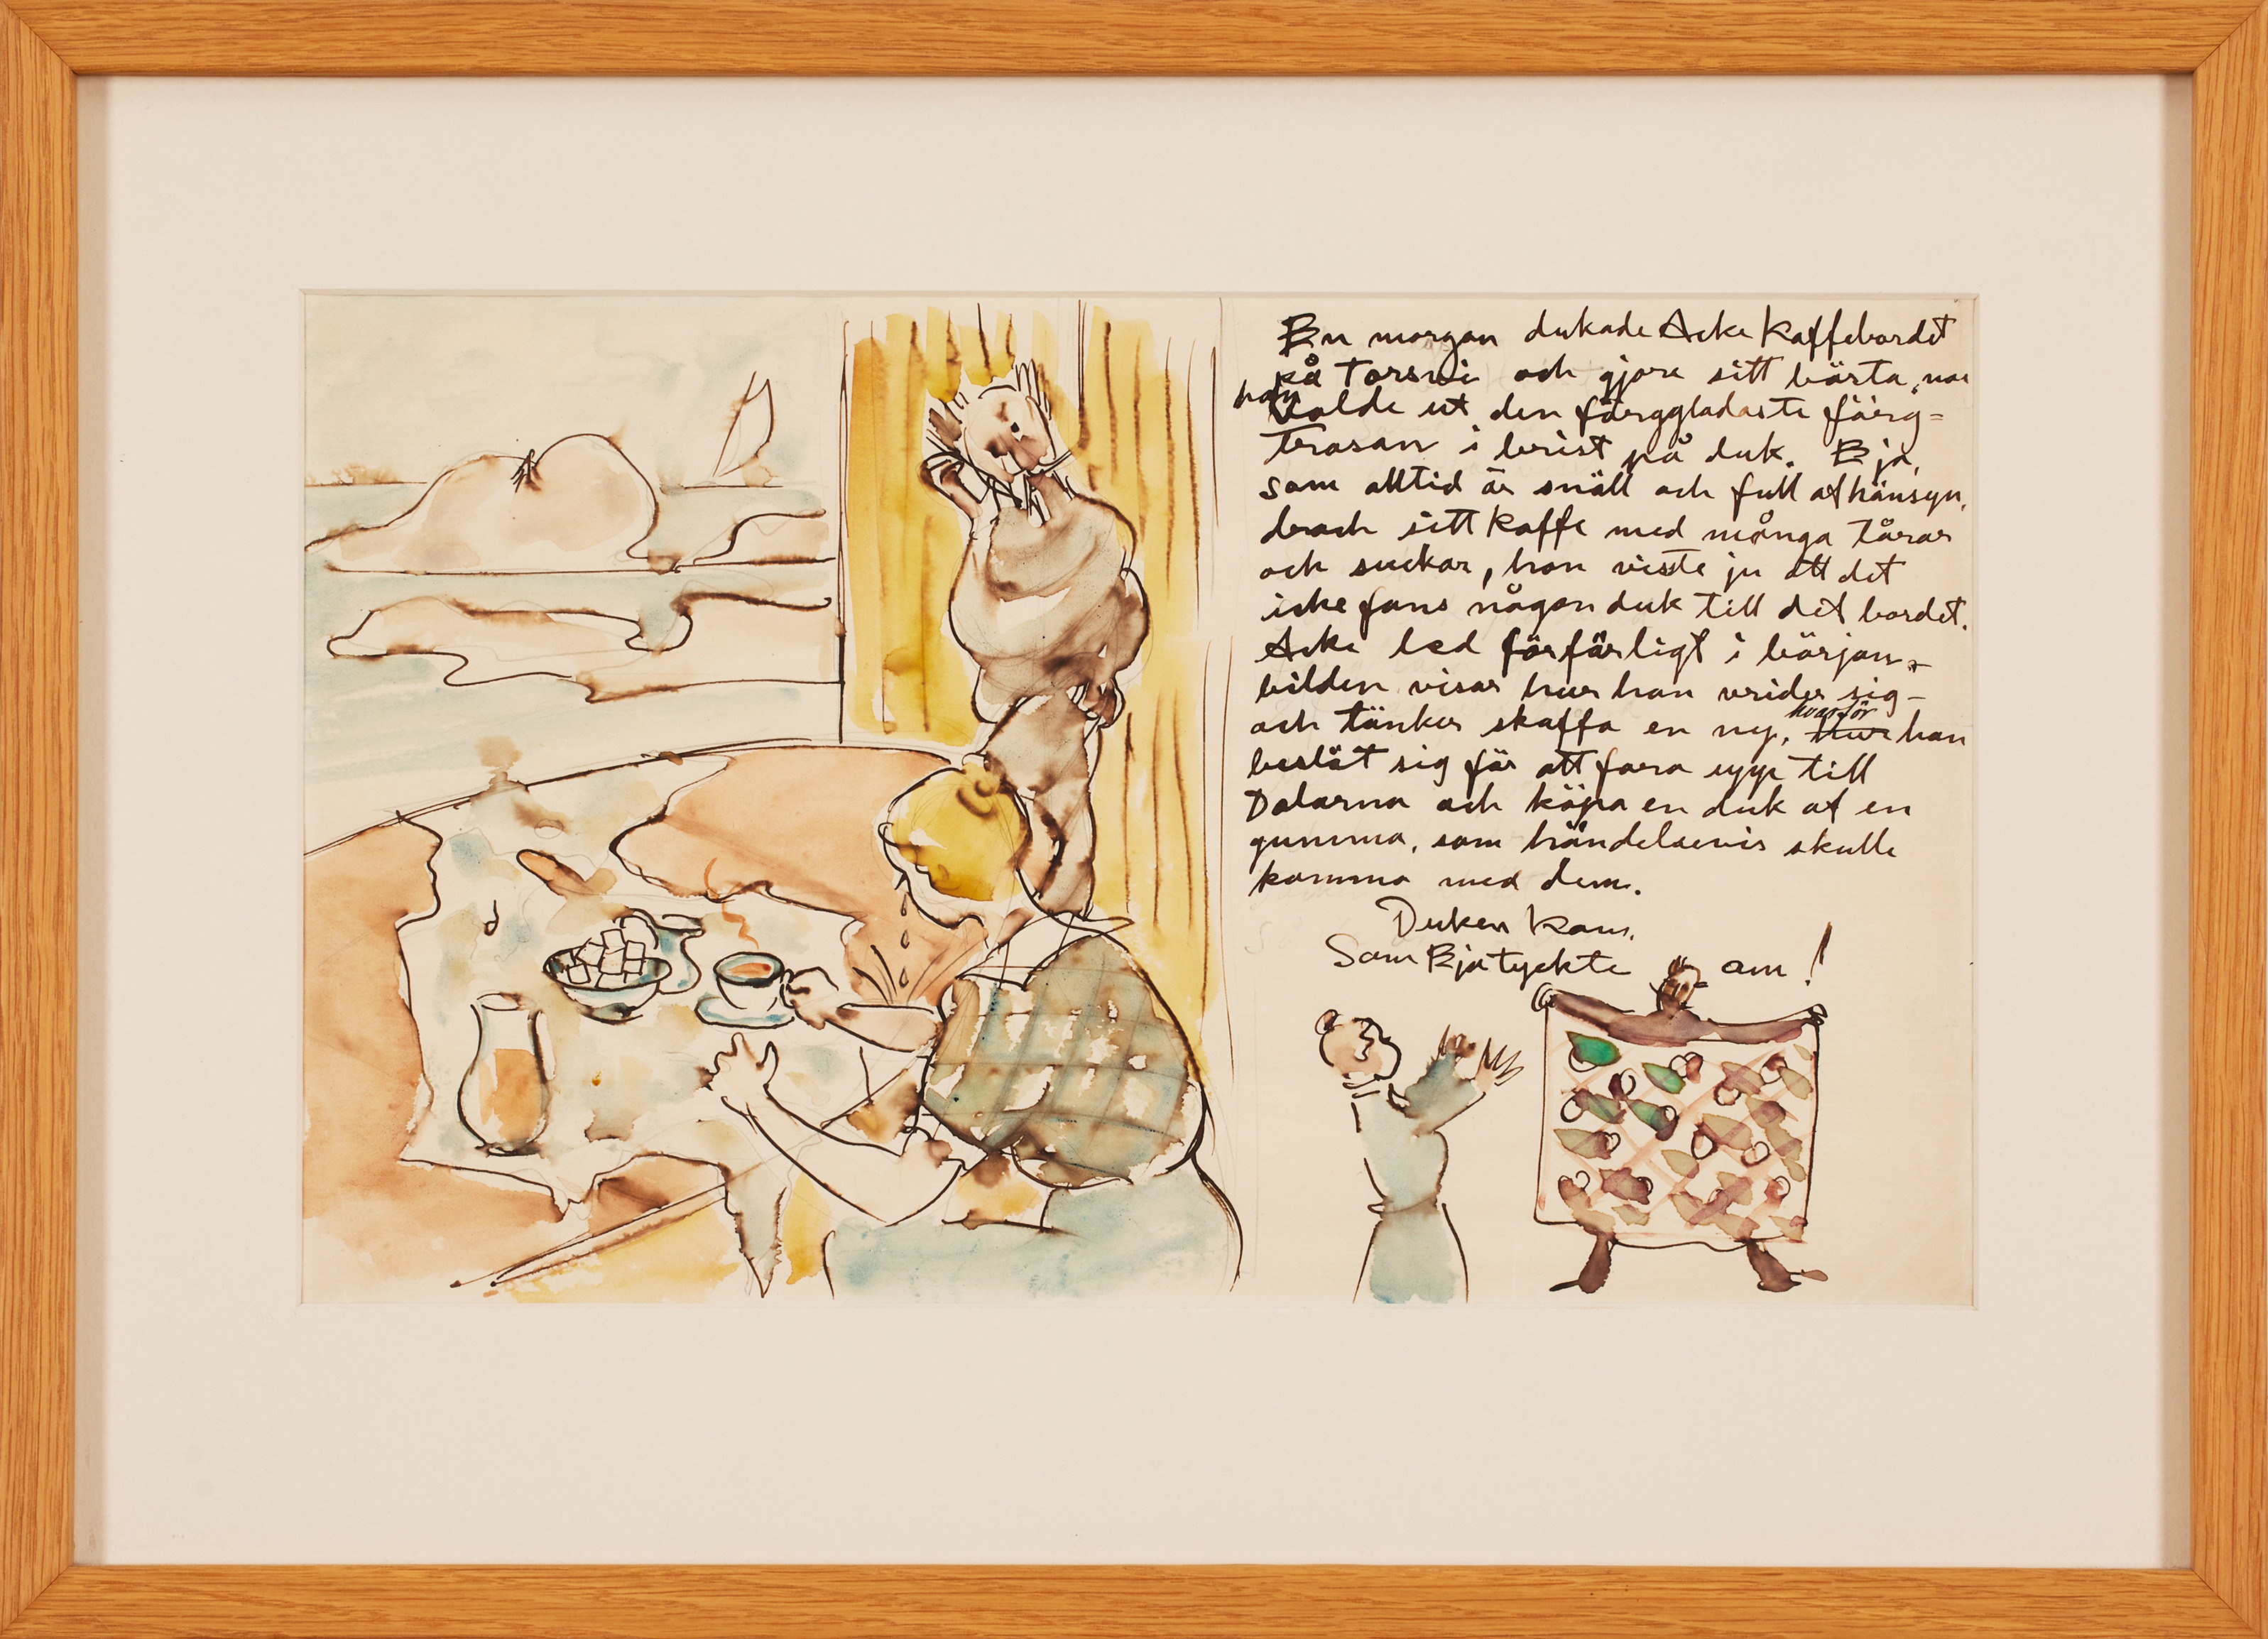 En morgon dukade Acke Kaffebordet
på Torsvi och gjore sitt bärsta, nar
han valde ut den färggladaste färg=
trasan i brist på duk. Bja,
som alltid är snäll och full af hänsyn,
drack sitt Kaffe med många tårar
och suckar, hon viste ju att det
icke fans någon duk till det bordet.
Acke led förfärligt i början, –
bilden visar hur han vrider sig –
och tänker skaffa en ny, hvarför hur han
beslöt sig för att fara upp till
Dalarna och köpa en duk af en
gumma, som händelsevis skulle
komma med dem.
Duken kom,
Som Bja tyckte om!